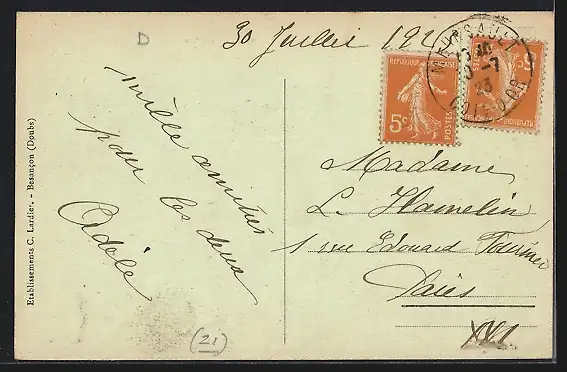 D
30 Juillet 1923
mille amitiés
pour les deux
Adèle
Etablissements C. Lardier. - Besançon (Doubs)
REPUBLIQUE FRANÇAISE
5c
POSTES
MEURSAULT
30 -7
23
COTE D'OR
5c
Madame
L. Hamelin
1 rue Edouard Fournier
Paris
XVI
(21)